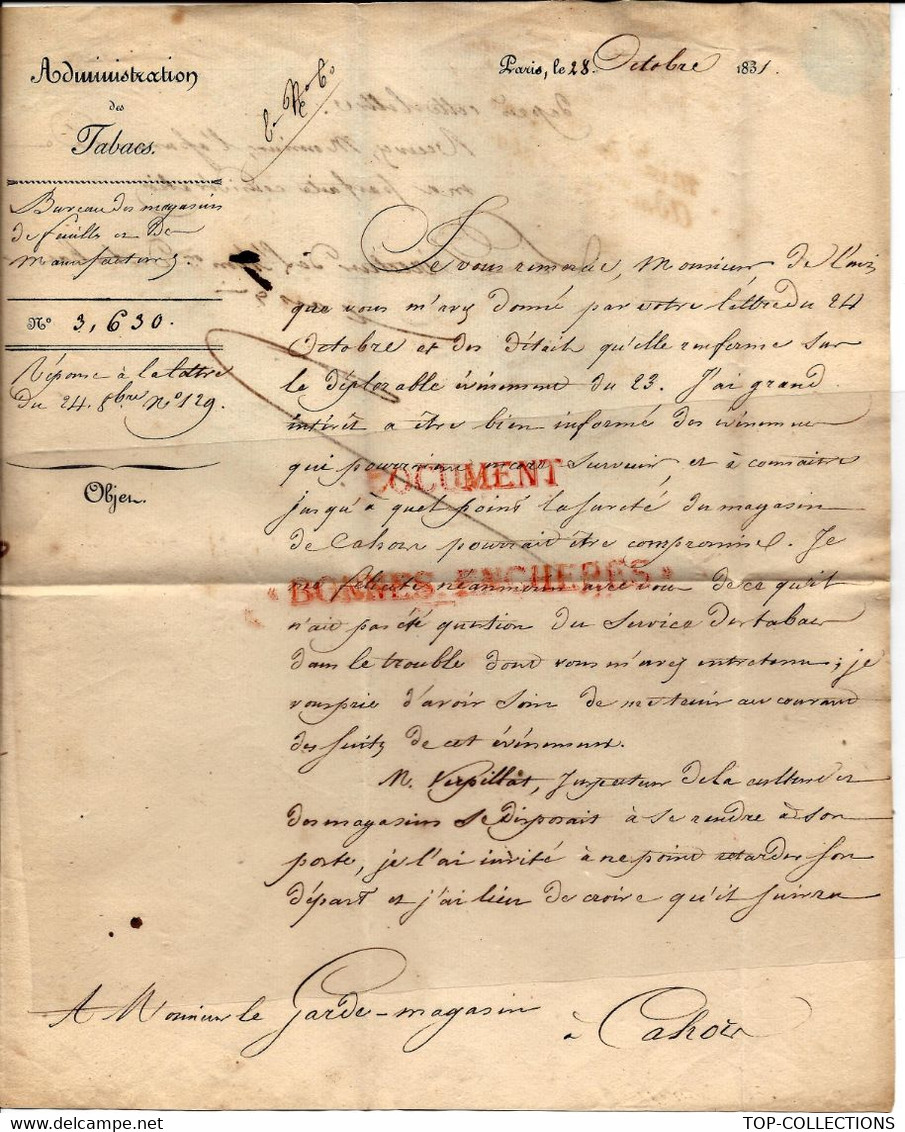 Administration
des
Tabacs.
Paris, le 28. Octobre 1831.
Bureau des magasins
de feuilles et De
Manufactures.
N° 3,630.
Réponse à la lettre
du 24. 8bre N° 129.
Objet.
Je vous remercie, Monsieur de l'avis
que vous m'avez donné par votre lettre du 24
Octobre et des détails qu'elle renferme sur
le déplorable événement du 23. J'ai grand
intérêt a être bien informé des événemens
qui pourraient encore survenir, et à connaitre
jusqu'à quel point la sureté du magasin
de Cahors pourrait être compromise. Je
me félicite néanmoins avec vous de ce qu'il
n'ait pas été question du Service des tabacs
dans le trouble dont vous m'avez entretenu; je
vous prie d'avoir soin de me tenir au courant
des suites de cet événement.
M. Verpillat, Inspecteur de la culture et
des magasins se disposait à se rendre à son
poste, je l'ai invité à ne point retarder son
départ et j'ai lieu de croire qu'il suivra
A Monsieur le Garde-magasin
à Cahors
DOCUMENT
" BONNES ENCHERES "
TOP-COLLECTIONS